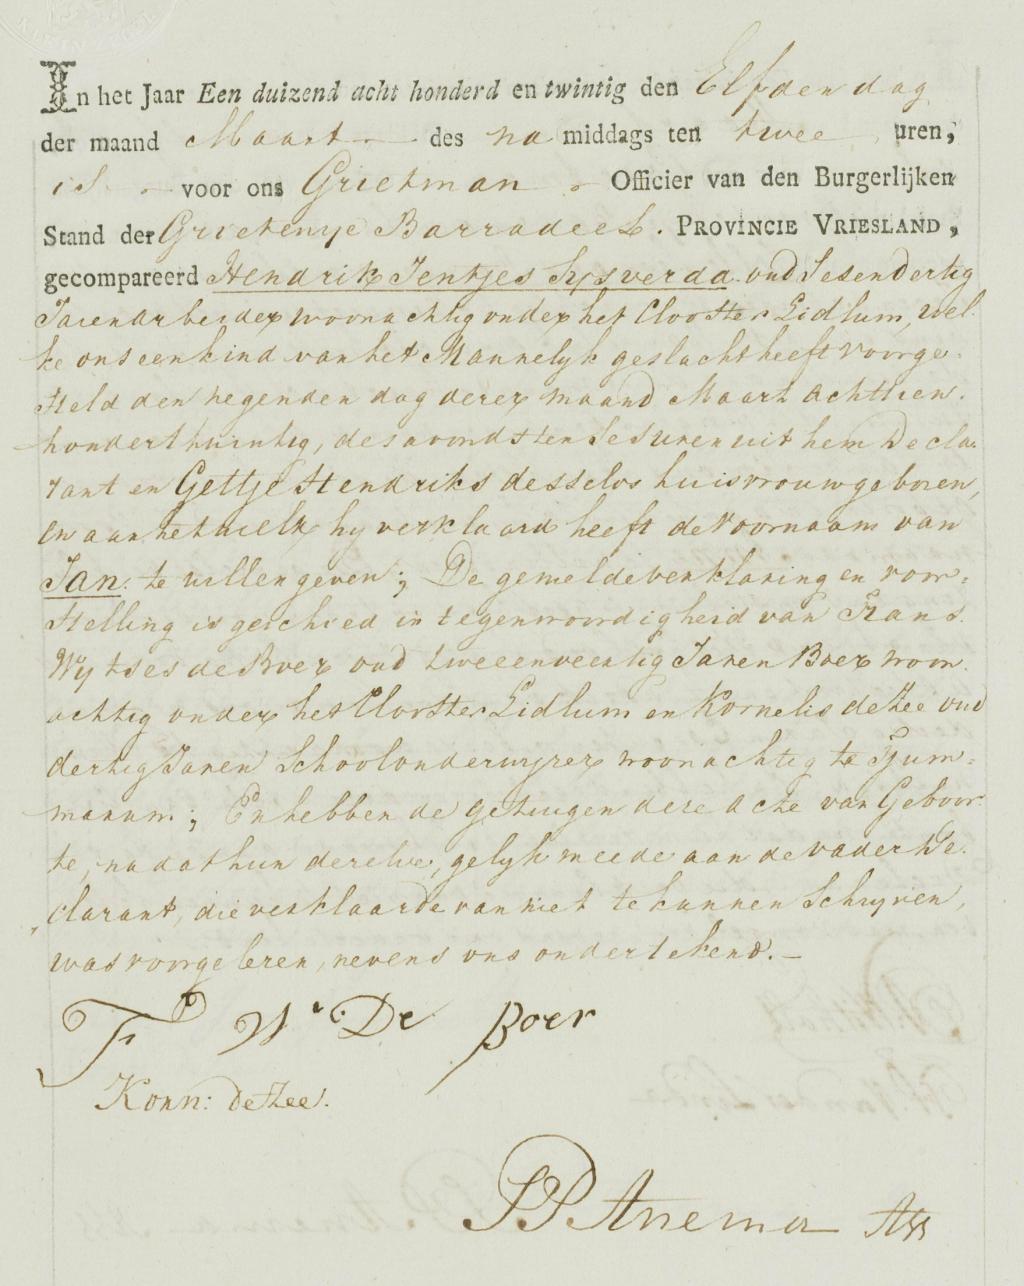 In het Jaar Een duizend acht honderd en twintig den Elfden dag
der maand Maart des na middags ten twee uren,
is voor ons Grietman Officier van den Burgerlijken
Stand der Grietenye Barradeel. PROVINCIE VRIESLAND,
gecompareerd Hendrik Jentjes Sysverda oud Sesendertig
Jaren Arbeider woonachtig onder het Clooster Lidlum, wel-
ke ons een kind van het Mannelyk geslacht heeft voorge-
steld den negenden dag dezer maand Maart Achttien-
hondert twintig, des avonds ten Ses uren uit hem Decla-
rant en Gettje Hendriks desselvs huisvrouw geboren,
en aan hetwelk hy verklaard heeft de voornaam van
Jan: te willen geven; De gemelde verklaring en voor-
stelling is geschied in tegenwoordigheid van Frans
Wytses de Boer oud tweeenveertig Jaren Boer woon-
achtig onder het Clooster Lidlum en Kornelis de Zee oud
dertig Jaren Schoolonderwyzer woonachtig te Tjum-
marum; En hebben de getuigen deze Acte van Geboor-
te, na dat hun dezelve, gelyk meede aan de vader De-
clarant, die verklaarde van niet te kunnen Schryven,
was voorgelezen, nevens ons ondertekend.-
Fs Ws De Boer
Korn: de Zee.
SP Anema Ass